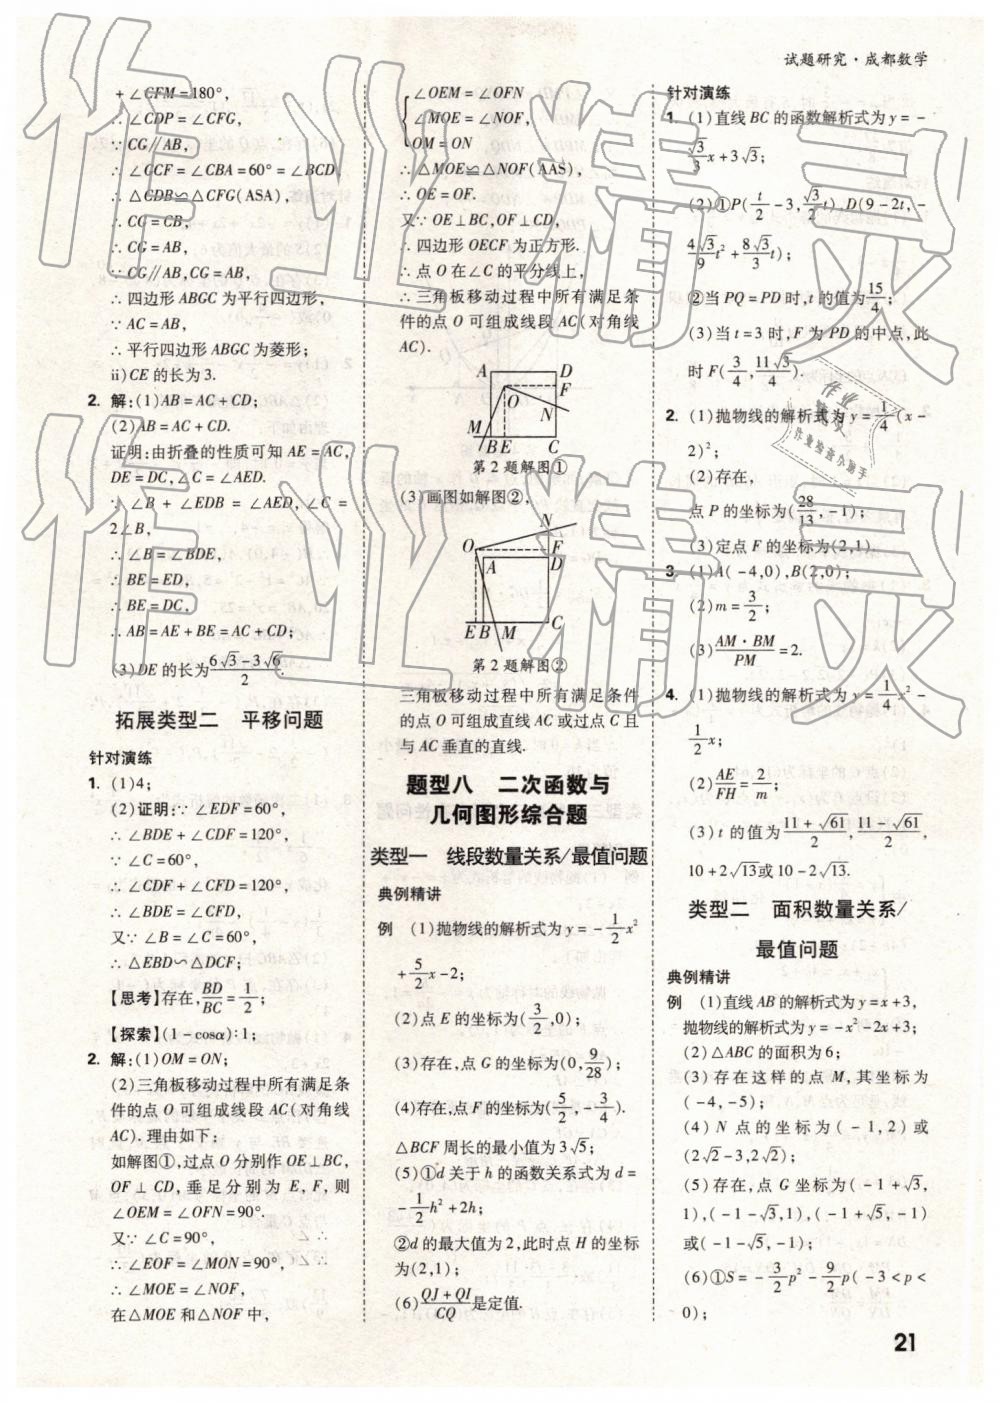 试题研究·成都数学
+∠CFM=180°,
∴∠CDP=∠CFG,
∵CG∥AB,
∴∠GCF=∠CBA=60°=∠BCD,
∴△CDB≌△CFG(ASA),
∴CG=CB,
∴CG=AB,
∵CG∥AB,CG=AB,
∴四边形ABGC为平行四边形,
∵AC=AB,
∴平行四边形ABGC为菱形;
ii)CE的长为3.
2. 解:(1)AB=AC+CD;
(2)AB=AC+CD.
证明:由折叠的性质可知AE=AC,
DE=DC,∠C=∠AED.
∵∠B+∠EDB=∠AED,∠C=
2∠B,
∴∠B=∠BDE,
∴BE=ED,
∴BE=DC,
∴AB=AE+BE=AC+CD;
(3)DE的长为(6√3-3√6)/2.
拓展类型二 平移问题
针对演练
1. (1)4;
(2)证明:∵∠EDF=60°,
∴∠BDE+∠CDF=120°,
∵∠C=60°,
∴∠CDF+∠CFD=120°,
∴∠BDE=∠CFD,
又∵∠B=∠C=60°,
∴△EBD∽△DCF;
【思考】存在,BD/BC=1/2;
【探索】(1-cosα):1;
2. 解:(1)OM=ON;
(2)三角板移动过程中所有满足条
件的点O可组成线段AC(对角线
AC).理由如下;
如解图①,过点O分别作OE⊥BC,
OF⊥CD,垂足分别为E,F,则
∠OEM=∠OFN=90°.
又∵∠C=90°,
∴∠EOF=∠MON=90°,
∴∠MOE=∠NOF,
在△MOE和△NOF中,
∠OEM=∠OFN
∠MOE=∠NOF,
OM=ON
∴△MOE≌△NOF(AAS),
∴OE=OF.
又∵OE⊥BC,OF⊥CD,
∴四边形OECF为正方形.
∴点O在∠C的平分线上,
∴三角板移动过程中所有满足条
件的点O可组成线段AC(对角线
AC).
A D
F
O
N
M
B E C
第2题解图①
(3)画图如解图②,
N
O F
A D
E B M C
第2题解图②
三角板移动过程中所有满足条件
的点O可组成直线AC或过点C且
与AC垂直的直线.
题型八 二次函数与
几何图形综合题
类型一 线段数量关系/最值问题
典例精讲
例 (1)抛物线的解析式为y=-1/2x²
+5/2x-2;
(2)点E的坐标为(3/2,0);
(3)存在,点G的坐标为(0,9/28);
(4)存在,点F的坐标为(5/2,-3/4).
△BCF周长的最小值为3√5;
(5)①d关于h的函数关系式为d=
-1/2h²+2h;
②d的最大值为2,此时点H的坐标
为(2,1);
(6)(QJ+QI)/CQ是定值.
针对演练
1. (1)直线BC的函数解析式为y=-
√3/3x+3√3;
(2)①P(t/2-3,√3/2t),D(9-2t,-
4√3/9t²+8√3/3t);
②当PQ=PD时,t的值为15/4;
(3)当t=3时,F为PD的中点,此
时F(3/4,11√3/4).
2. (1)抛物线的解析式为y=1/4(x-
2)²;
(2)存在,
点P的坐标为(28/13,-1);
(3)定点F的坐标为(2,1).
3. (1)A(-4,0),B(2,0);
(2)m=3/2;
(3)AM·BM/PM=2.
4. (1)抛物线的解析式为y=1/4x²-
1/2x;
(2)AE/FH=2/m;
(3)t的值为(11+√61)/2,(11-√61)/2,
10+2√13或10-2√13.
类型二 面积数量关系/
最值问题
典例精讲
例 (1)直线AB的解析式为y=x+3,
抛物线的解析式为y=-x²-2x+3;
(2)△ABC的面积为6;
(3)存在这样的点M,其坐标为
(-4,-5);
(4)N点的坐标为(-1,2)或
(2√2-3,2√2);
(5)存在,点G坐标为(-1+√3,
1),(-1-√3,1),(-1+√5,-1)
或(-1-√5,-1);
(6)①S=-3/2p²-9/2p(-3<p<
0);
21
作业精灵
作业精灵